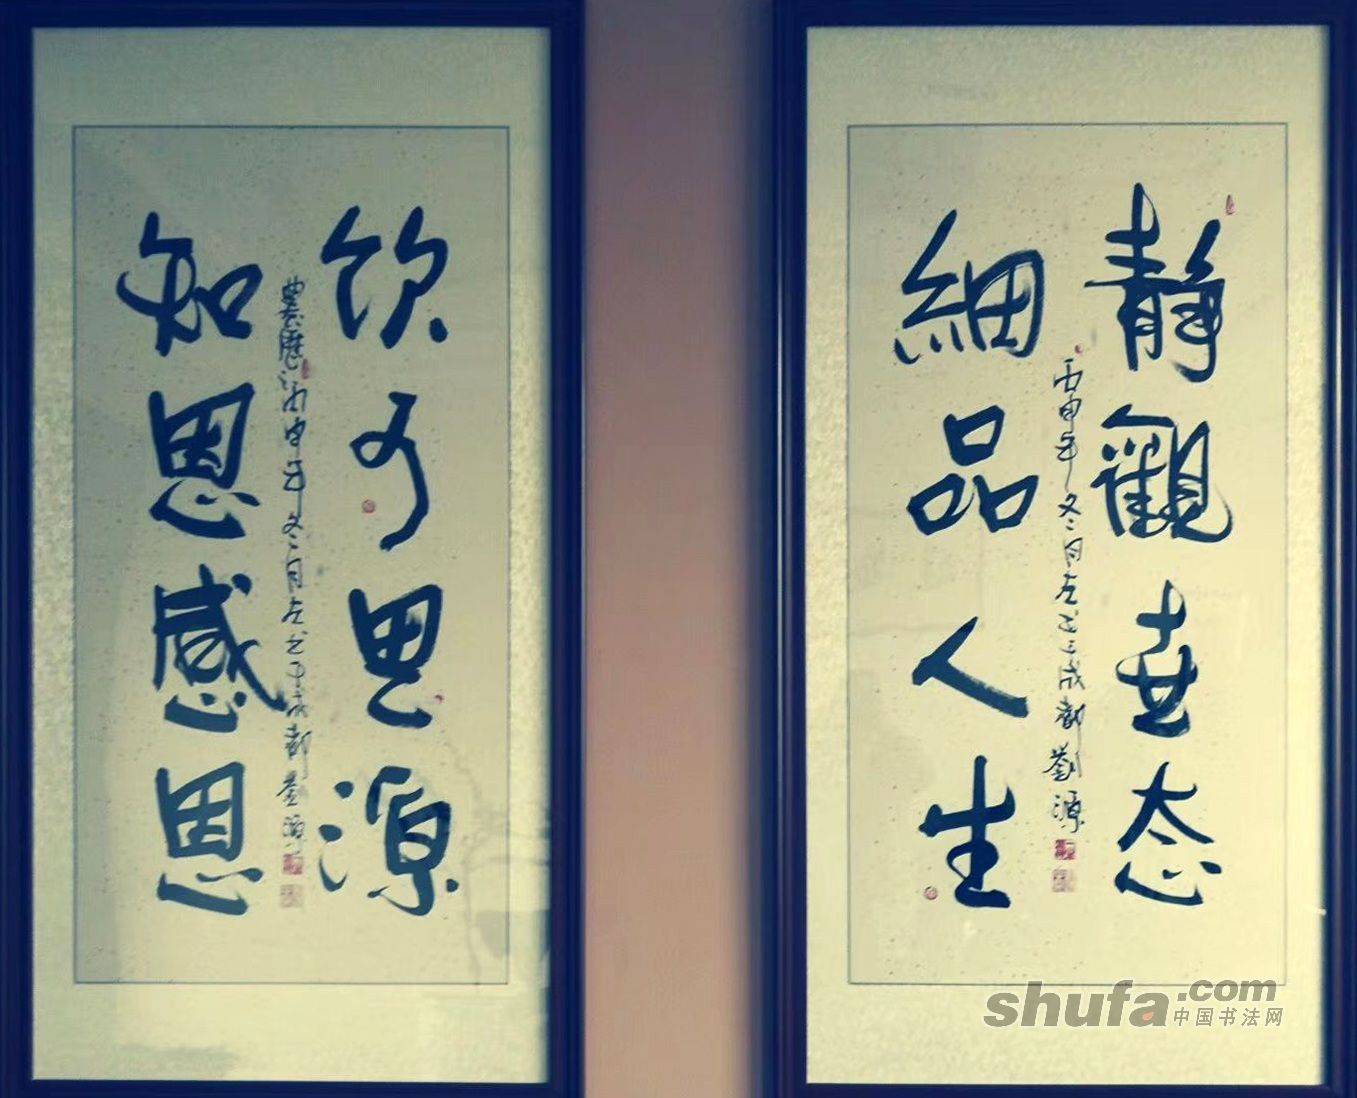 静觀世态
丙申年冬月左书于成都劉源
細品人生
饮水思源
農歷丙申年冬月左书于成都劉源
知恩感恩
shufa.com
中国书法网